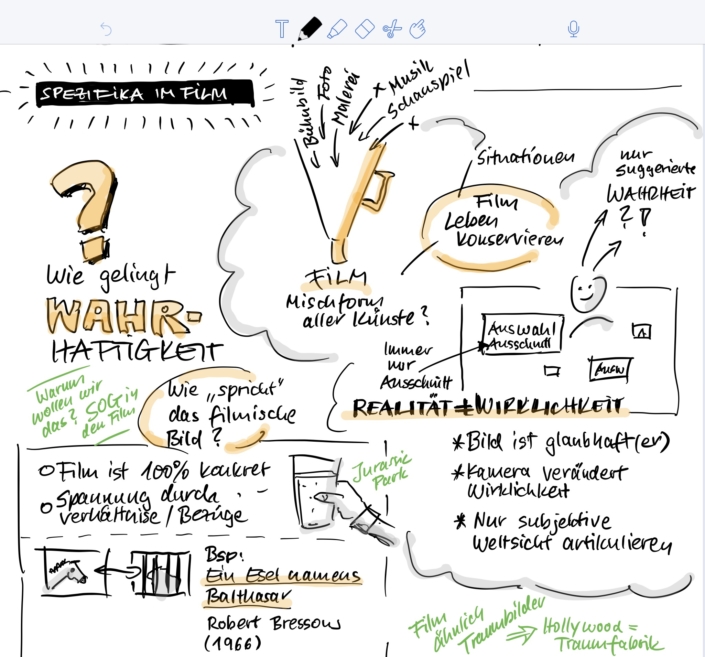 T
SPEZIFIKA IM FILM
Bühnbild
Foto
Malerei
+ Musik
Schauspiel
+
?
Wie gelingt
WAHR-
HAFTIGKEIT
Warum
wollen wir
das? SOG in
den Film
FILM
Mischform
aller Künste?
Situationen
Film
Leben
konservieren
nur
suggerierte
WAHRHEIT
? !
Auswahl
Ausschnitt
A
Ausw
Immer
nur
Ausschnitt
REALITÄT ≠ WIRKLICHKEIT
* Bild ist glaubhaft(er)
* Kamera verändert
Wirklichkeit
* Nur subjektive
Weltsicht artikulieren
Wie „spricht"
das filmische
Bild?
o Film ist 100% konkret
o Spannung durch
verhältnise / Bezüge
Jurassic
Park
Bsp:
Ein Esel namens
Balthasar
Robert Bressons
(1966)
Film
ähnlich
Traumbilder
⇒ Hollywood =
Traumfabrik